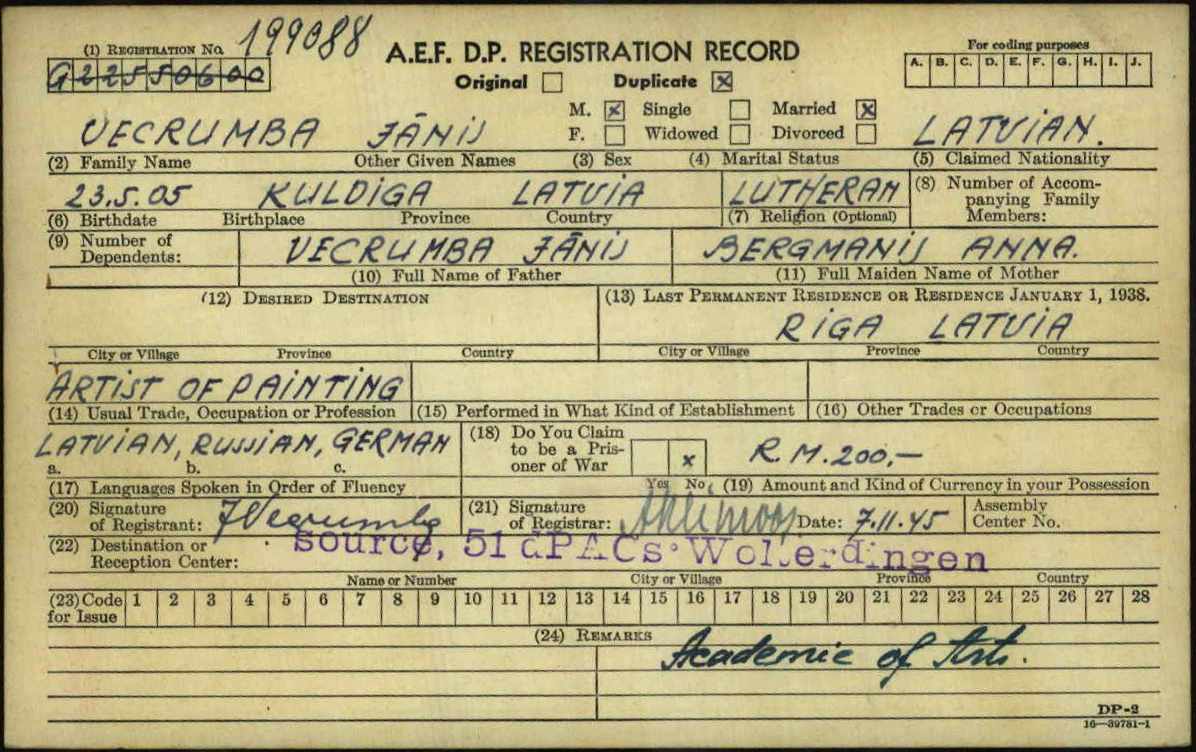 (1) REGISTRATION No. 199088
G22550600
A.E.F. D.P. REGISTRATION RECORD
Original Duplicate x
For coding purposes
A. B. C. D. E. F. G. H. I. J.
M. x Single Married x
F. Widowed Divorced
VECRUMBA JĀNIS LATVIAN.
(2) Family Name Other Given Names (3) Sex (4) Marital Status (5) Claimed Nationality
23.5.05 KULDIGA LATVIA LUTHERAN (8) Number of Accompanying Family Members:
(6) Birthdate Birthplace Province Country (7) Religion (Optional)
(9) Number of Dependents: VECRUMBA JĀNIS BERGMANIS ANNA.
(10) Full Name of Father (11) Full Maiden Name of Mother
(12) DESIRED DESTINATION (13) LAST PERMANENT RESIDENCE OR RESIDENCE JANUARY 1, 1938.
RIGA LATVIA
City or Village Province Country City or Village Province Country
ARTIST OF PAINTING
(14) Usual Trade, Occupation or Profession (15) Performed in What Kind of Establishment (16) Other Trades or Occupations
LATVIAN, RUSSIAN, GERMAN (18) Do You Claim to be a Prisoner of War x R.M. 200,—
a. b. c.
(17) Languages Spoken in Order of Fluency Yes No (19) Amount and Kind of Currency in your Possession
(20) Signature of Registrant: JVecrumba (21) Signature of Registrar: Date: 7.11.45 Assembly Center No.
(22) Destination or Reception Center: source, 51 dPACs Wolterdingen
Name or Number City or Village Province Country
(23) Code for Issue 1 2 3 4 5 6 7 8 9 10 11 12 13 14 15 16 17 18 19 20 21 22 23 24 25 26 27 28
(24) REMARKS
Academie of Arts.
DP-2
16—39781-1